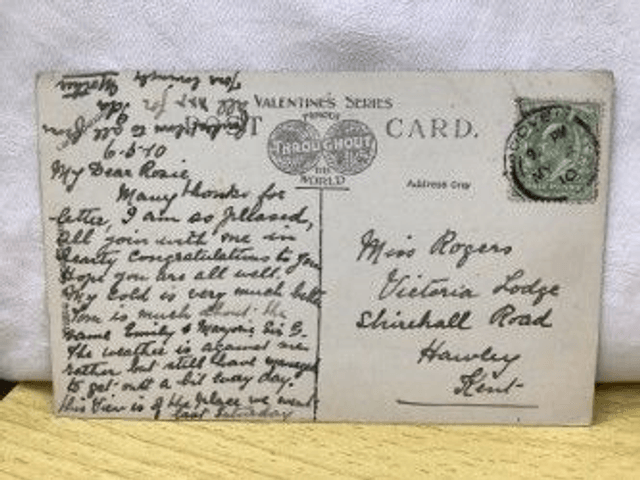 VALENTINE'S SERIES
FAMOUS
THROUGHOUT
THE
WORLD
POST CARD.
Address Only
6-5-10
My Dear Rosie,
Many thanks for
letter, I am so pleased,
all join with me in
hearty congratulations to you
Hope you are all well.
My cold is very much better
Tom is much about the
same Emily & Marjorie
The weather is against me
rather but still have managed
to get out a bit every day.
This View is of the place we went
last Saturday
to all
all
for
Miss Rogers
Victoria Lodge
Shirehall Road
Hawley
Kent
PM
MY
10